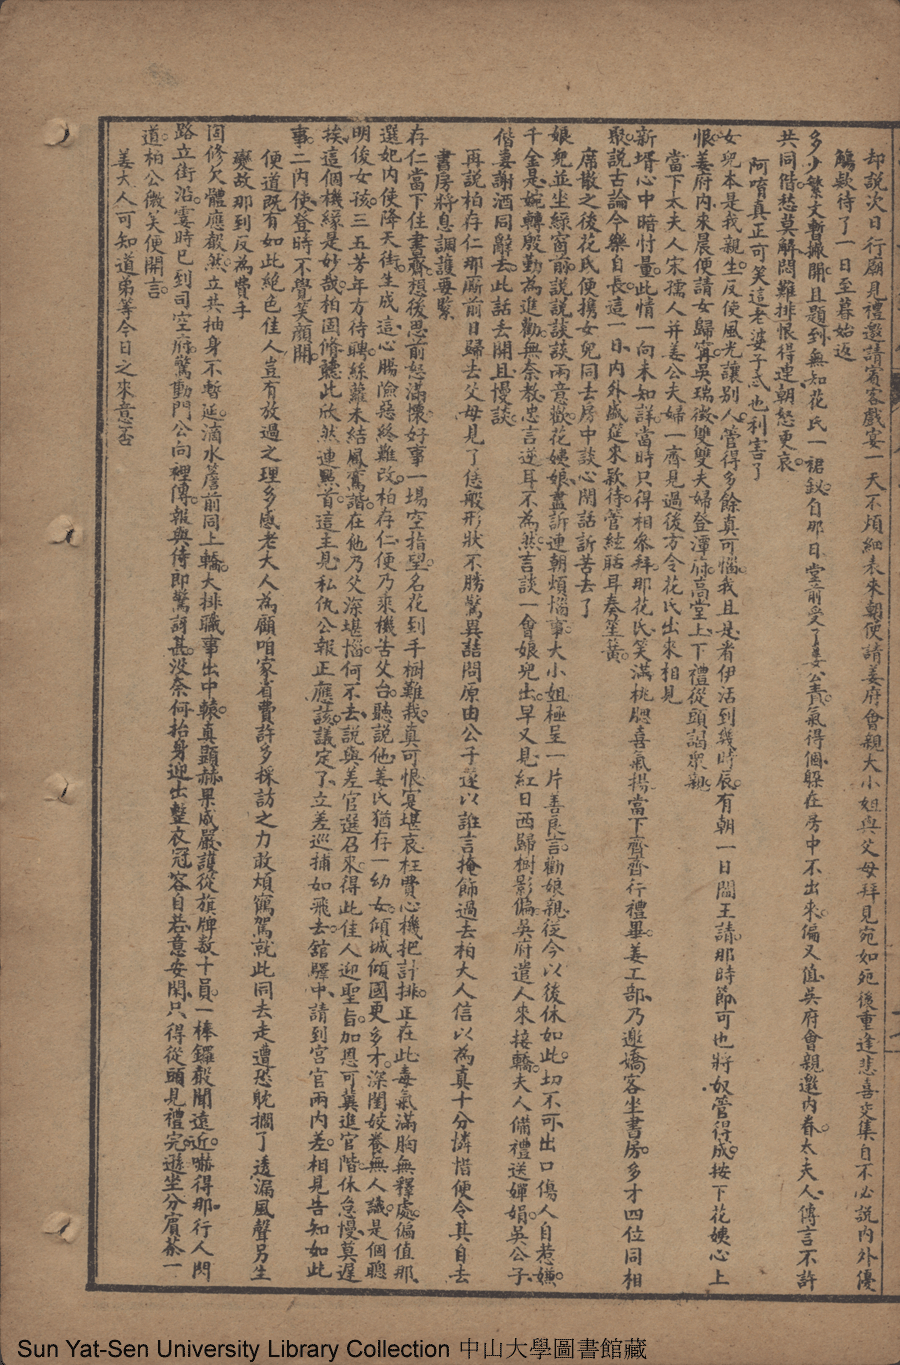 却說次日行廟見禮邀請賓客戲宴一天不煩細表來朝便請姜府會親大小姐與父母拜見宛如死後重逢悲喜交集自不必說內外優
觴款待了一日至暮始返
多少繁文暫撇開且題到無知花氏一裙釵自那日堂前受了姜公責氣得個躲在房中不出來偏又值吳府會親邀內眷太夫人傳言不許
共同偕愁莫解悶難排恨得連朝怒更哀
阿唷真正可笑這老婆子忒也利害了
女兒本是我親生反使風光讓別人管得多餘真可惱我且是看伊活到幾時辰有朝一日閻王請那時節可也將奴管得成按下花姨心上
恨姜府內來晨便請女歸寧吳瑞徵雙雙夫婦登潭府高堂上下禮從頭謁眾親
當下太夫人宋孺人并姜公夫婦一齊見過後方令花氏出來相見
新壻心中暗忖量此情一向未知詳當時只得相參拜那花氏笑滿桃腮喜氣揚當下齊齊行禮畢姜工部乃邀嬌客坐書房多才四位同相
聚說古論今樂自長這一日內外盛筵來款待管絃聒耳奏笙簧
席散之後花氏便携女兒同去房中談心閒話訴苦去了
娘兒並坐綠窗前說說談談兩意歡花姨娘盡訴連朝煩惱事大小姐極呈一片善良言勸娘親從今以後休如此切不可出口傷人自惹嫌
千金是婉轉殷勤為進勸無奈教忠言逆耳不為然言談一會娘兒出早又見紅日西歸樹影偏吳府遣人來接轎夫人備禮送嬋娟吳公子
偕妻謝酒同辭去此話丟開且慢談
再說柏存仁那廝前日歸去父母見了恁般形狀不勝驚異詰問原由公子遂以誑言掩飾過去柏大人信以為真十分憐惜便令其自去
書房將息調護要緊
存仁當下住書齋想後思前怒滿懷好事一場空指望名花到手樹難栽真可恨寔堪哀枉費心機把計排正在此毒氣滿胸無釋處偏值那
選妃內使降天街生成這心腸險惡終難改柏存仁便乃乘機告父台聽說他姜氏猶存一幼女傾城傾國更多才深閨姣養無人識是個聰
明俊女孩三五芳年方待聘絲蘿未結鳳鸞諧在他乃父深堪惱何不去說與差官選召來得此佳人迎聖旨加恩可冀進官階休怠慢莫遲
挨這個機緣是妙哉柏閻脩聽此欣然連點首這主見私仇公報正應該議定了立差巡捕如飛去舘驛中請到宮官兩內差相見告知如此
事二內使登時不覺笑顏開
便道既有如此絕色佳人豈有放過之理多感老大人為顧咱家省費許多採訪之力敢煩寫駕就此同去走遭恐耽擱了透漏風聲另生
變故那到反為費手
閻修欠體應聲然立共抽身不暫延滴水簷前同上轎大排職事出中轅真顯赫果威嚴護從旗牌數十員一棒鑼聲聞遠近嚇得那行人閃
路立街沿霎時已到司空府驚動門公向裡傳報與侍郎驚訝甚沒奈何抬身迎出整衣冠容自若意安閑只得從頭見禮完遜坐分賓茶一
道柏公微笑便開言
姜大人可知道弟等今日之來意否
Sun Yat-Sen University Library Collection 中山大學圖書館藏